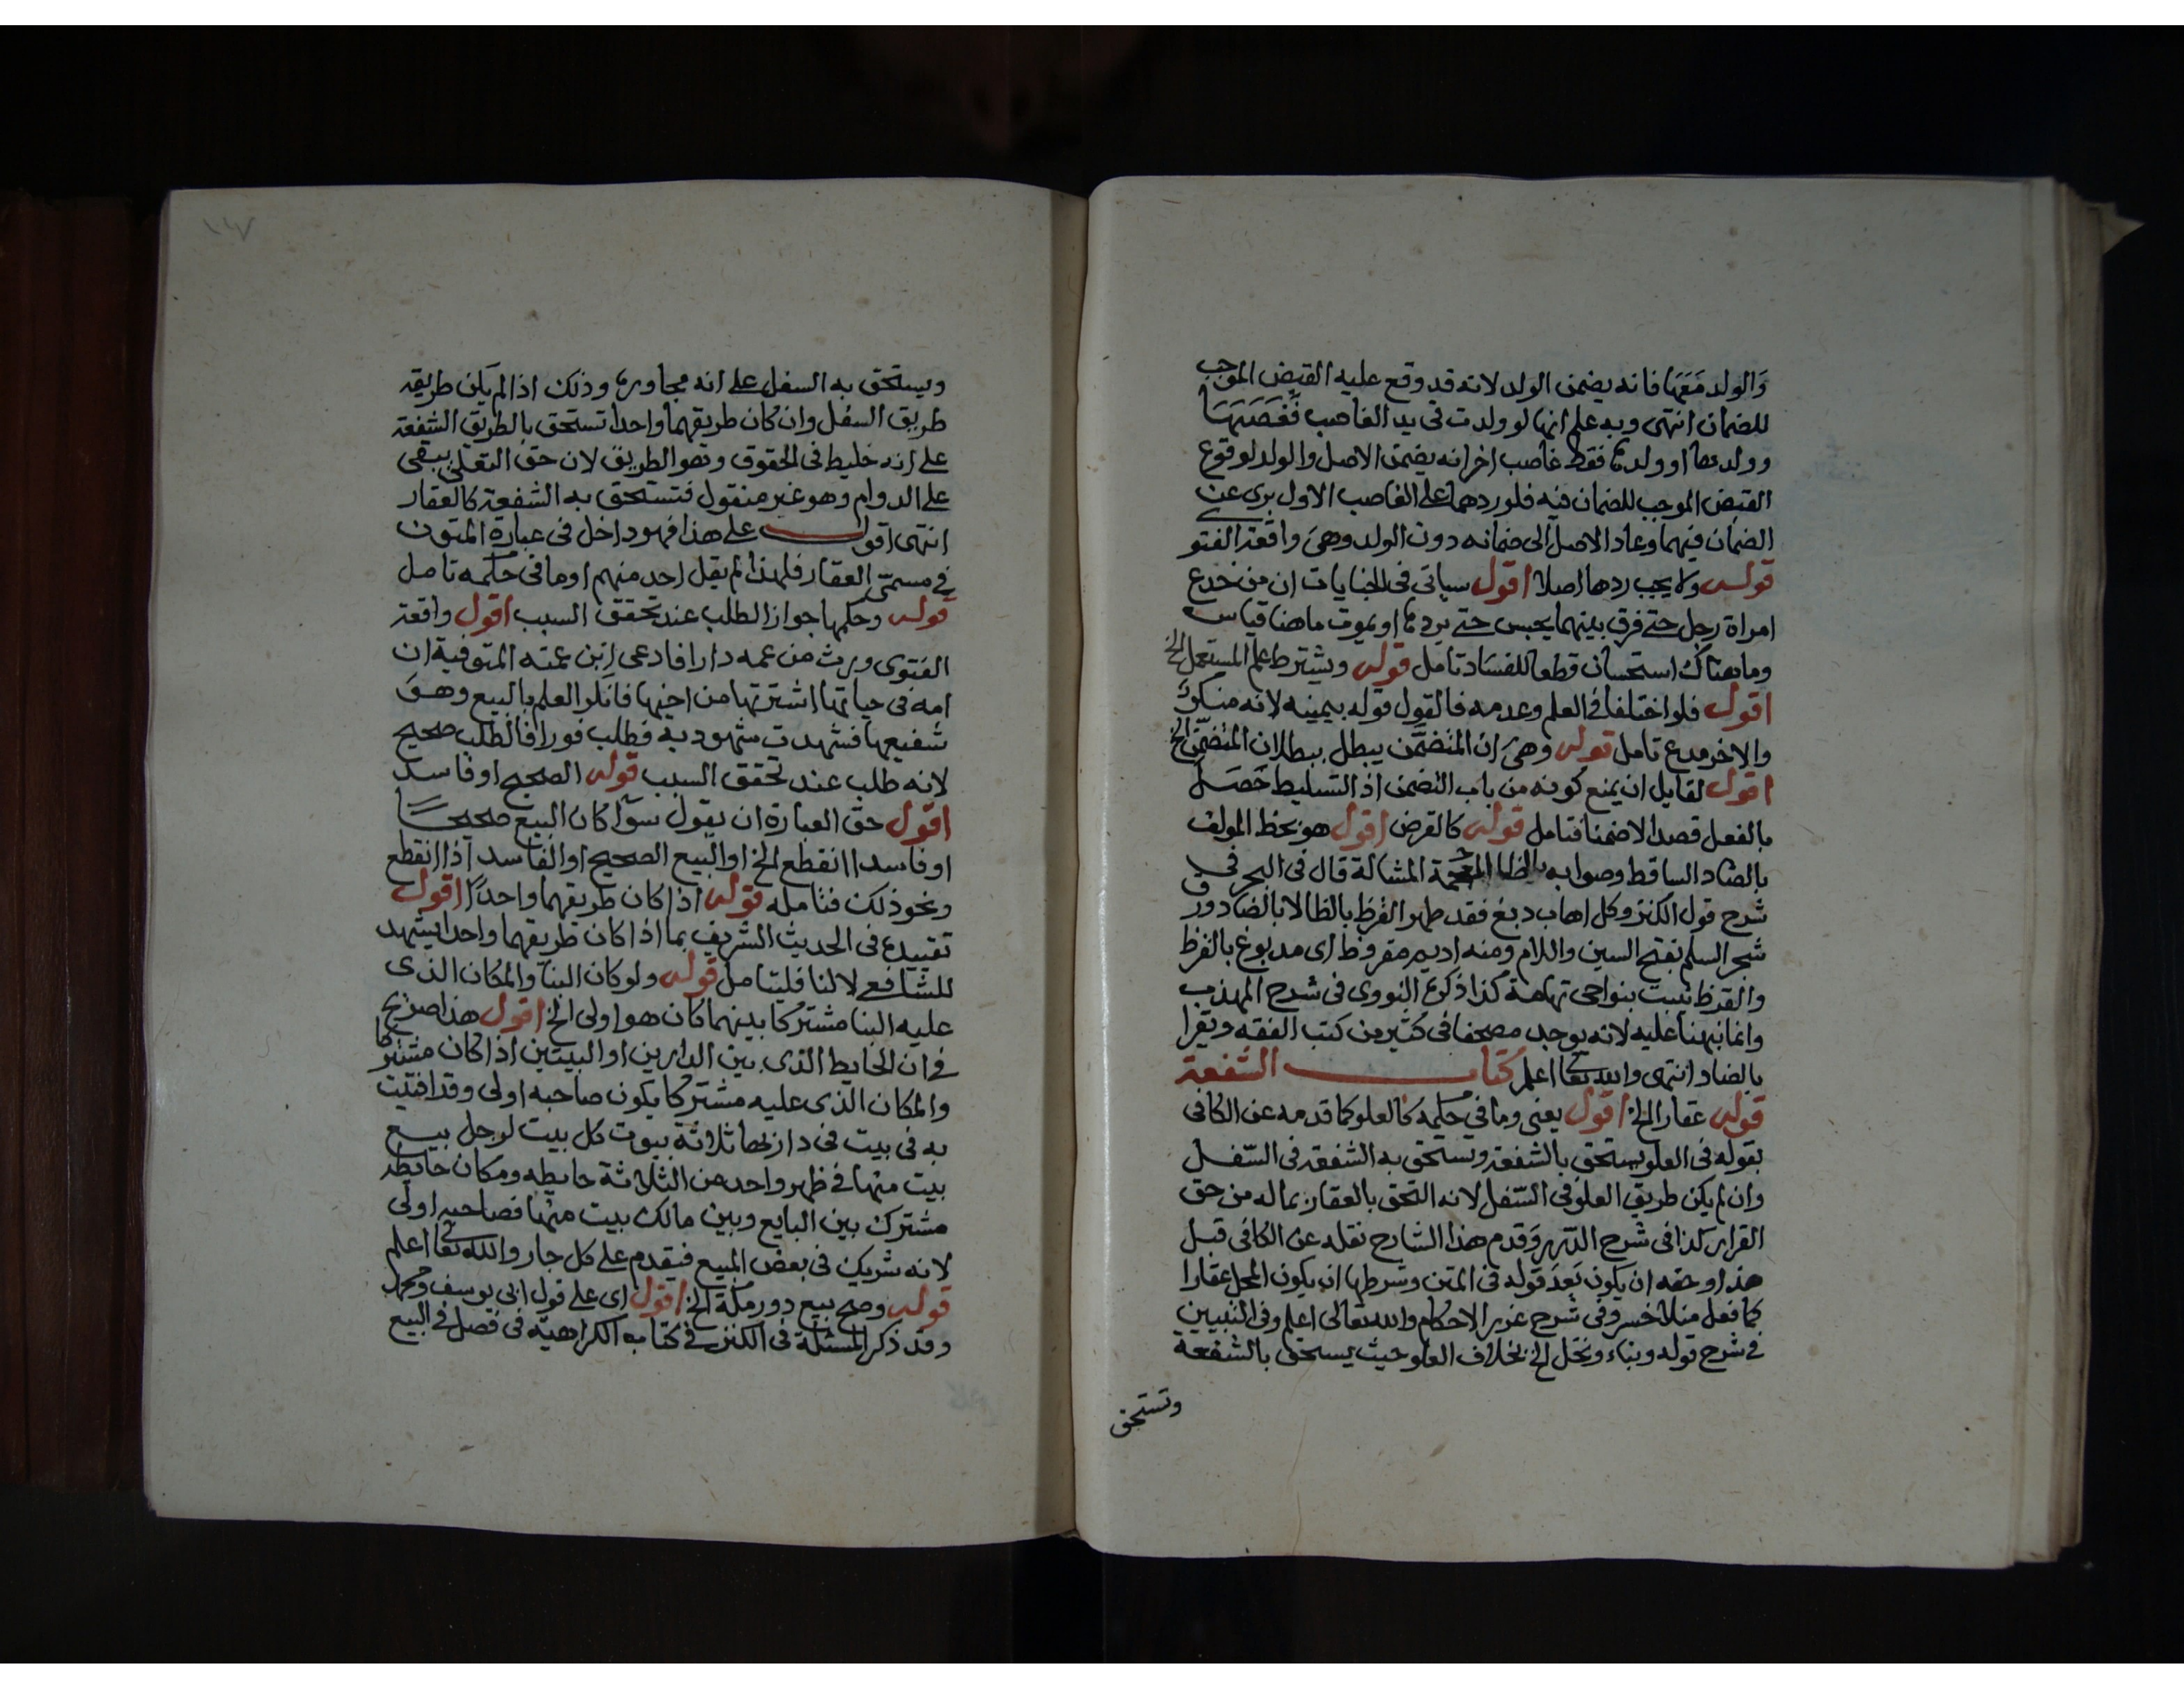 والولد معها فانه يضمن الولد لانه قد وقع عليه القبض الموجب
للضمان انتهى وبه علم انها لو ولدت في يد الغاصب فغصبها
وولدها او ولدها فقط غاصب اخر انه يضمن الاصل والولد لوقوع
القبض الموجب للضمان فيه فلو ردهما على الغاصب الاول برى عن
الضمان فيهما وعاد الاصل الى ضمانه دون الولد وهي واقعة الفتو
قوله ولا يجب ردها اصلا اقول سياتى فى الجنايات ان من خدع
امراة رجل حتى فرق بينهما يحبس حتى يردها او يموت ما هنا قياس
وما هناك استحسان قطعا للفساد تامل قوله ويشترط علم المستعمل الخ
اقول فلو اختلفا في العلم وعدمه فالقول قوله بيمينه لانه منكر
والاخر مدع تامل قوله وهي ان المتضمن يبطل ببطلان المتضمن الخ
اقول لقايل ان يمنع كونه من باب التضمن اذ التسليط حصل
بالفعل قصدا لا ضمنا فتامل قوله كالقرض اقول هو بخط المولف
بالضاد الساقط وصوابه بالظا المعجمة المشالة قال فى البحر في
شرح قول الكنز وكل اهاب دبغ فقد طهر القرظ بالظا لا بالضاد ورق
شجر السلم بفتح السين واللام ومنه اديم مقروظ اى مدبوغ بالقرظ
والقرظ نبت بنواحى تهامة كذا ذكره النووى فى شرح المهذب
وانما نبهنا عليه لانه يوجد مصحفا فى كثير من كتب الفقه ويقرا
بالضاد انتهى والله تعالى اعلم كتاب الشفعة
قوله عقار الخ اقول يعنى وما في حكمه كالعلو كما قدمه عن الكافى
بقوله فى العلو يستحق بالشفعة ويستحق به الشفعة فى السفل
وان لم يكن طريق العلو فى السفل لانه التحق بالعقار بما له من حق
القرار كذا فى شرح الدرر وقدم هذا الشارح نقله عن الكافى قبل
هذا وحقه ان يكون بعد قوله فى المتن وشرطها ان يكون المحل عقارا
كما فعل منلا خسرو فى شرح غرر الاحكام والله تعالى اعلم وفى التبيين
في شرح قوله وبناء ونخل الخ بخلاف العلو حيث يستحق بالشفعة
وتستحق
ويستحق به السفل على انه مجاوره وذلك اذا لم يكن طريقه
طريق السفل وان كان طريقهما واحدا تستحق بالطريق الشفعة
على انه خليط فى الحقوق وهو الطريق لان حق التعلى يبقى
على الدوام وهو غير منقول فتستحق به الشفعة كالعقار
انتهى اقول على هذا فهو داخل فى عبارة المتون
في مسمى العقار فلهذا لم يقل احد منهم او ما فى حكمه تامل
قوله وحكمها جواز الطلب عند تحقق السبب اقول واقعة
الفتوى ورث من عمه دارا فادعى ابن عمته المتوفية ان
امه فى حياتها اشترتها من اخيها فانكر العلم بالبيع وهو
شفيعها فشهدت شهود به فطلب فورا فالطلب صحيح
لانه طلب عند تحقق السبب قوله الصحيح او فاسد
اقول حق العبارة ان يقول سوآ كان البيع صحيحا
او فاسدا انقطع الخ او البيع الصحيح او الفاسد اذا انقطع
ونحو ذلك فتامله قوله اذا كان طريقهما واحدا اقول
تقييده فى الحديث الشريف بما اذا كان طريقهما واحدا يشهد
للشافعى لا لنا فليتامل قوله ولو كان البنآ والمكان الذى
عليه البنا مشتركا بينهما كان هو اولى الخ اقول هذا صريح
في ان الحايط الذى بين الدارين او البيتين اذا كان مشتركا
والمكان الذى عليه مشتركا يكون صاحبه اولى وقد افتيت
به فى بيت فى دار بها ثلاثة بيوت كل بيت لرجل بيع
بيت منها في ظهر واحد من الثلاثة حايطه ومكان حايطه
مشترك بين البايع وبين مالك بيت منها فصاحبه اولى
لانه شريك فى بعض المبيع فيقدم على كل جار والله تعالى اعلم
قوله وصح بيع دور مكة الخ اقول اى على قول ابى يوسف ومحمد
وقد ذكر المسئلة فى الكنز في كتاب الكراهية فى فصل في البيع